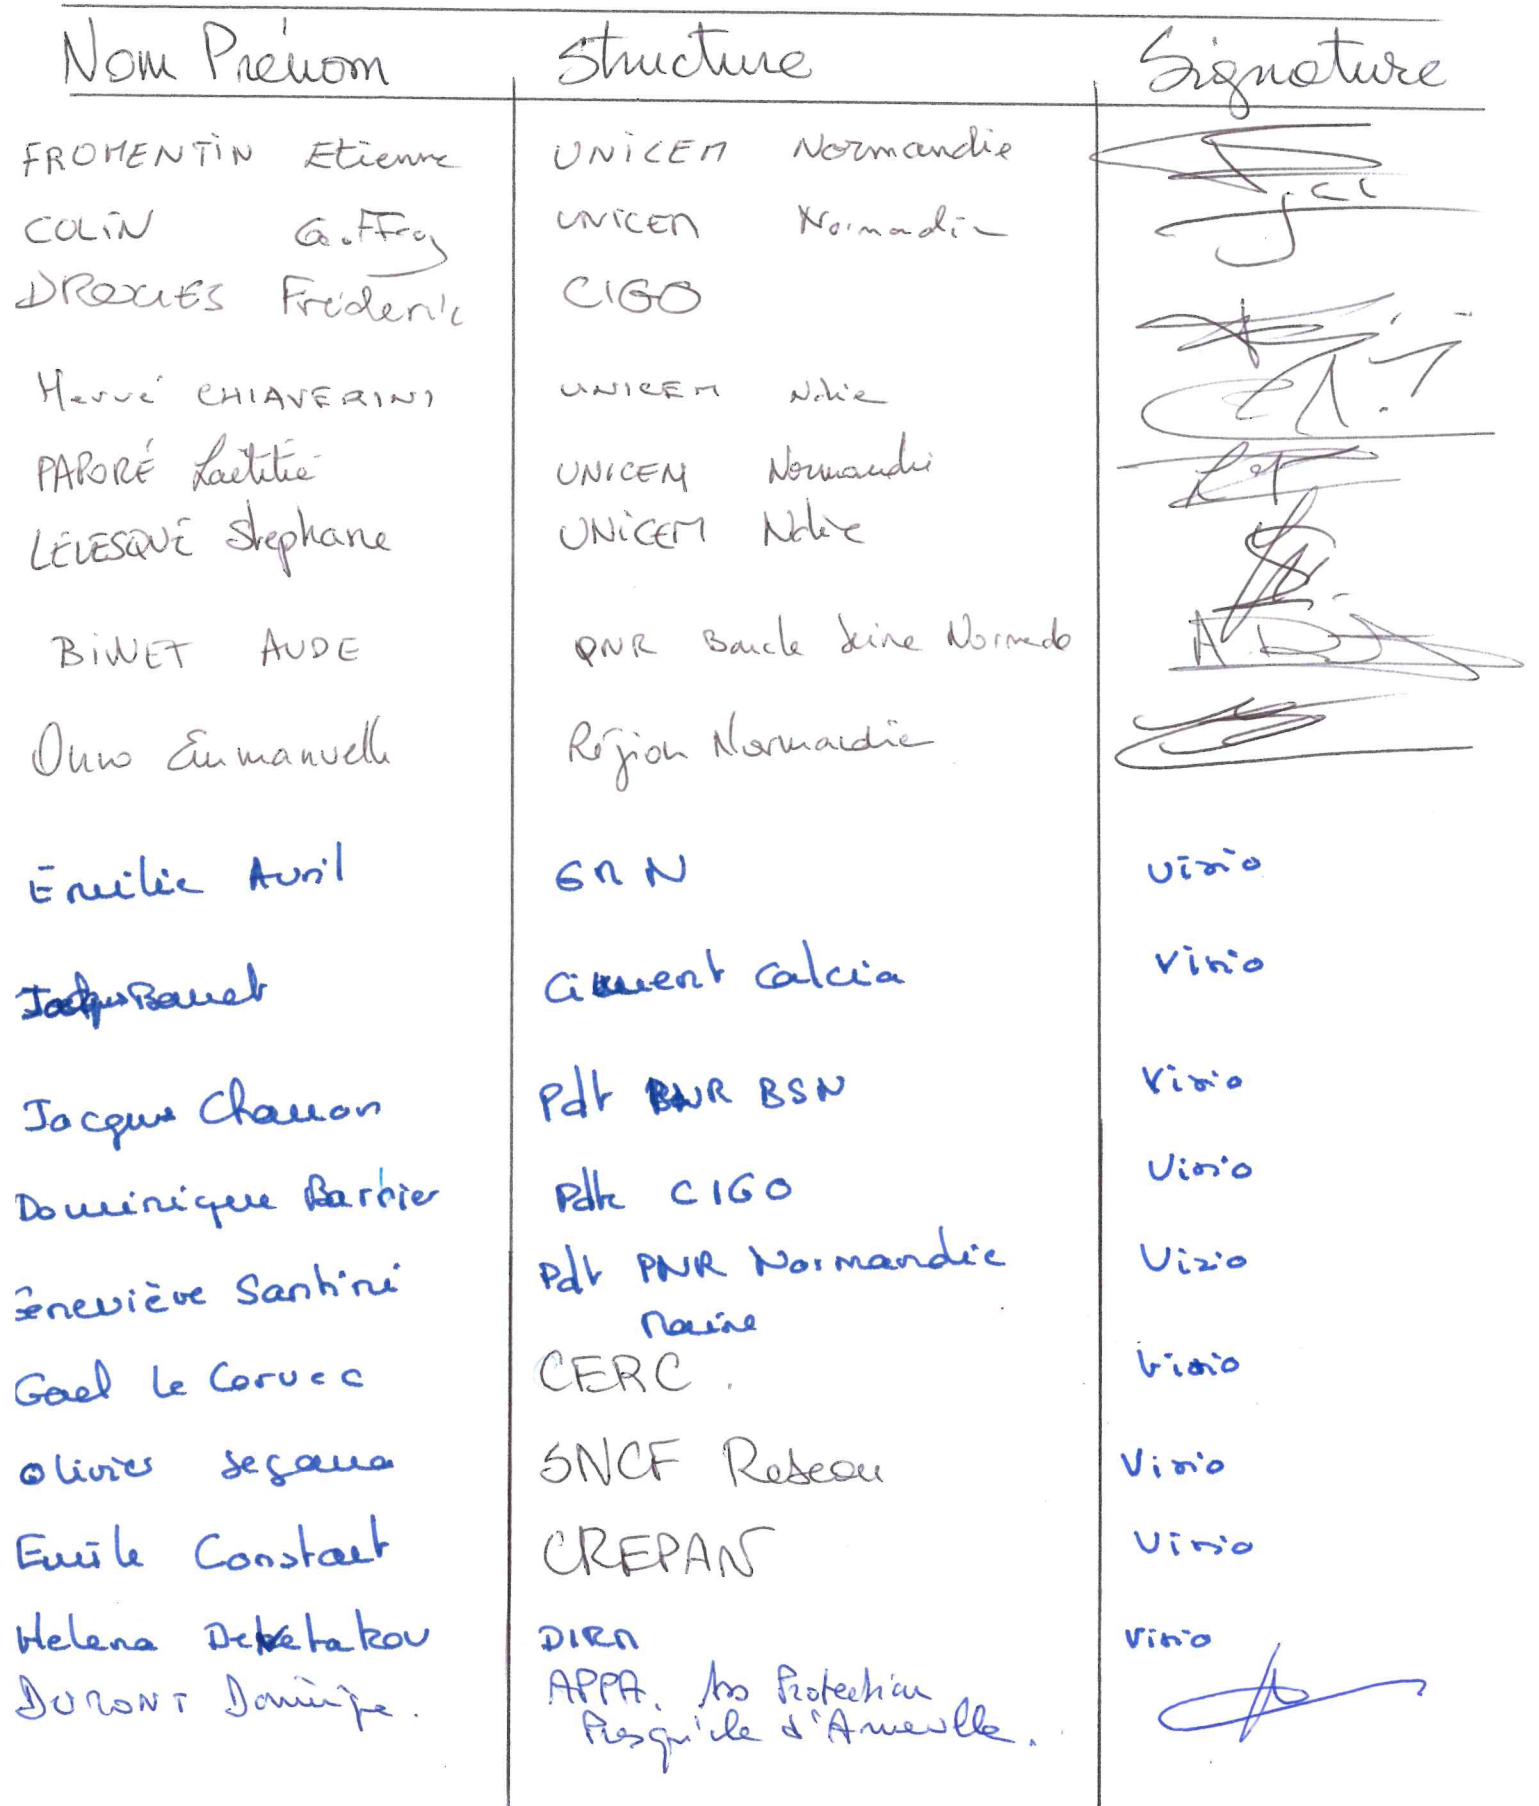 Nom Prénom Structure Signature
FROMENTIN Etienne UNICEM Normandie
COLIN Geoffroy UNICEM Normandie
Frédéric CIGO
Hervé CHIAVERINI UNICEM Ndie
PAPORÉ Laëtitia UNICEM Normandie
LEVESQUE Stéphane UNICEM Ndie
BINET AUDE PNR Boucle Seine Normande
Onno Emmanuelle Région Normandie
Emilie Avril GMN Visio
Jacques Bauet Ciment Calcia Visio
Jacques Charron Pdt PNR BSN Visio
Dominique Barbier Pdte CIGO Visio
Geneviève Santini Pdt PNR Normandie Visio
Maine
Gael le Corvec CERC Visio
Olivier SNCF Reseau Visio
Emile Constant CREPAN Visio
Helena DIRM Visio
DURONT Dominique. APPA. Ass Protection
Presqu'ile d'Anneville.